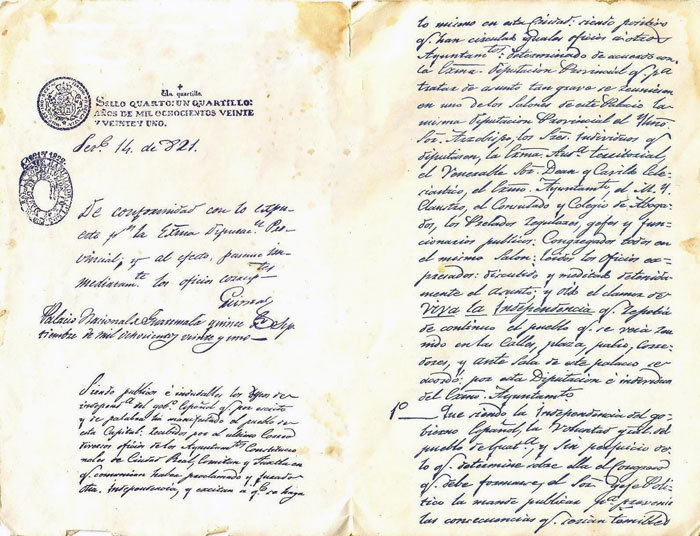 Un quartillo.
SELLO QUARTO: UN QUARTILLO:
AÑOS DE MIL OCHOCIENTOS VEINTE
Y VEINTE Y UNO.
14. de 821.
De conformidad con lo expu-
esto pr la Exma Diputac.n Pro-
vincial, y al efecto, pasense in-
mediatam.te los oficios corresp.tes
Palacio Nacional de Guatemala quince de Sep-
tiembre de mil ochocientos veinte y uno
Siendo publicos é indudables los deseos de
independ.a del gob.o Español q.e por escrito
y de palabra ha manifestado el pueblo de
esta Capital: recibidos por el ultimo Correo
diversos oficios de los Ayuntam.tos Constitucio-
nales de Ciudad Real, Comitan y Tuxtla en
q.e comunican haber proclamado y jurado
dha. independencia, y excitan a q.e se haga
lo mismo en esta Ciudad: siendo positivo
q.e han circulado iguales oficios a otros
Ayuntam.tos: determinado de acuerdo con
la Exma. Diputacion Provincial q.e pa
tratar de asunto tan grave se reuniesen
en uno de los Salones de este Palacio la
misma Diputacion Provincial el Ylmo
Sor. Arzobispo, los Sres. Individuos q.e
diputasen, la Exma. Aud.a Territorial,
el Venerable Sor. Dean y Cavildo Ecle-
siastico, el Exmo. Ayuntam.to, el M. Y.
Claustro, el Consulado y Colegio de Aboga-
dos, los Prelados regulares, gefes y fun-
cionarios publicos: Congregados todos en
el mismo Salon: leidos los oficios ex-
presados: discutido y meditado detenida-
mente el asunto; y oido el clamor de
Viva la Independencia q.e repetia
de continuo el pueblo q.e se veia reu-
nido en las Calles, plaza, patio, corre-
dores, y ante Sala de este palacio se
acordó: por esta Diputacion é individuos
del Exmo. Ayuntam.to
1.o Que siendo la Independencia del go-
bierno Español, la Voluntad gral. del
pueblo de Guat.a y sin perjuicio de
lo q.e determine sobre ella el Congreso
q.e debe formarse, el Sor. Gefe Poli-
tico la mande publicar p.a prevenir
las consecuencias q.e serian temibles